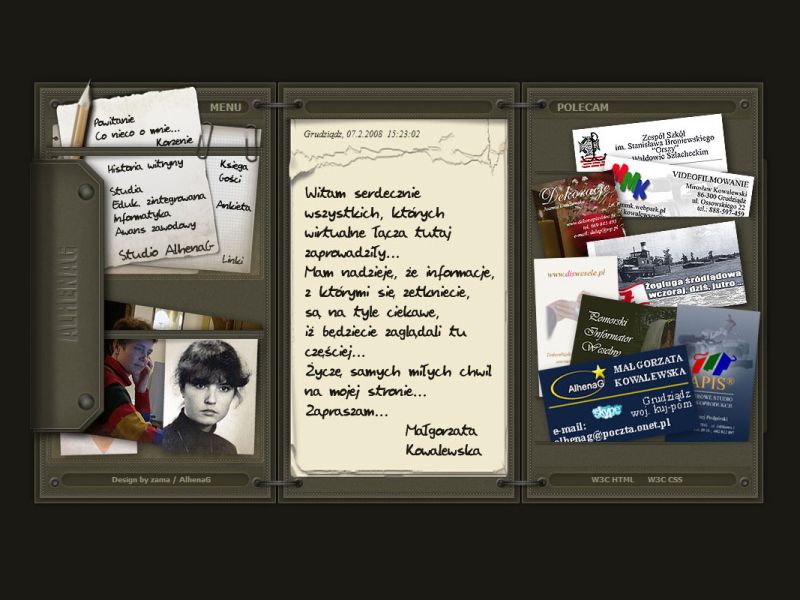 MENU
Powitanie
Co nieco o mnie...
Korzenie
Historia witryny
Studia
Eduk. zintegrowana
Informatyka
Awans zawodowy
Studio AlhenaG
Księga
Gości
Ankieta
Linki
ALHENAG
Design by zama / AlhenaG
Grudziądz, 07.2.2008 15:23:02
Witam serdecznie
wszystkich, których
wirtualne łącza tutaj
zaprowadziły...
Mam nadzieję, że informacje,
z którymi się zetkniecie,
są na tyle ciekawe,
iż będziecie zaglądali tu
częściej...
Życzę samych miłych chwil
na mojej stronie...
Zapraszam...
Małgorzata
Kowalewska
POLECAM
Zespół Szkół
im. Stanisława Broniewskiego
"Orszy"
Wałdowie Szlacheckim
VIDEOFILMOWANIE
Mirosław Kowalewski
86-300 Grudziądz
ul. Ossowskiego 22
tel.: 888-597-459
MMK
Dekoracje
żegluga śródlądowa
wczoraj, dziś, jutro...
www.diswesele.pl
Pomorski
Informator
Weselny
APIS®
AlhenaG
MAŁGORZATA
KOWALEWSKA
Grudziądz
woj. kuj-pom
skype
e-mail:
alhenag@poczta.onet.pl
W3C HTML W3C CSS